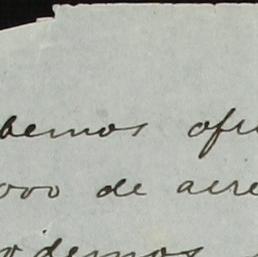 bemos ofr
000 de acre
odemos